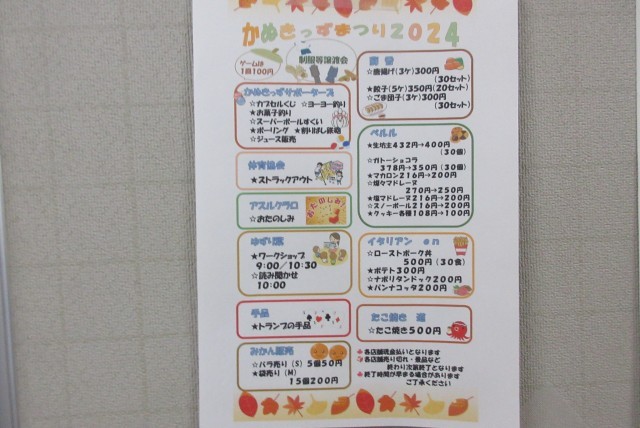 かぬきっずまつり2024
ゲームは
1回100円
制服等譲渡会
かぬきっずサポーターズ
☆カプセルくじ ☆ヨーヨー釣り
★お菓子釣り
☆スーパーボールすくい
★ボーリング ★割りばし鉄砲
☆ジュース販売
体育協会
★ストラックアウト
アスルクラロ
☆おたのしみ
おたのしみ
★ワークショップ
9:00/10:30
☆読み聞かせ
10:00
手品
★トランプの手品
みかん販売
☆バラ売り(S) 5個50円
★袋売り(M)
15個200円
☆唐揚げ(3ケ)300円
(30セット)
★餃子(5ケ)350円(20セット)
☆ごま団子(3ケ)300円
(30セット)
ベルル
★生坊主432円→400円
(30個)
☆ガトーショコラ
378円→350円(30個)
★マカロン216円→200円
☆塩マドレーヌ216円→200円
270円→250円
☆スノーボール216円→200円
★クッキー各種108円→100円
イタリアン en
☆ローストポーク丼
500円(30食)
★ポテト300円
☆ナポリタンドッグ200円
★パンナコッタ200円
たこ焼き
☆たこ焼き500円
各店舗現金払いとなります
各店舗売り切れ・景品など
終わり次第終了となります
終了時間が早まる場合があります
ご了承ください